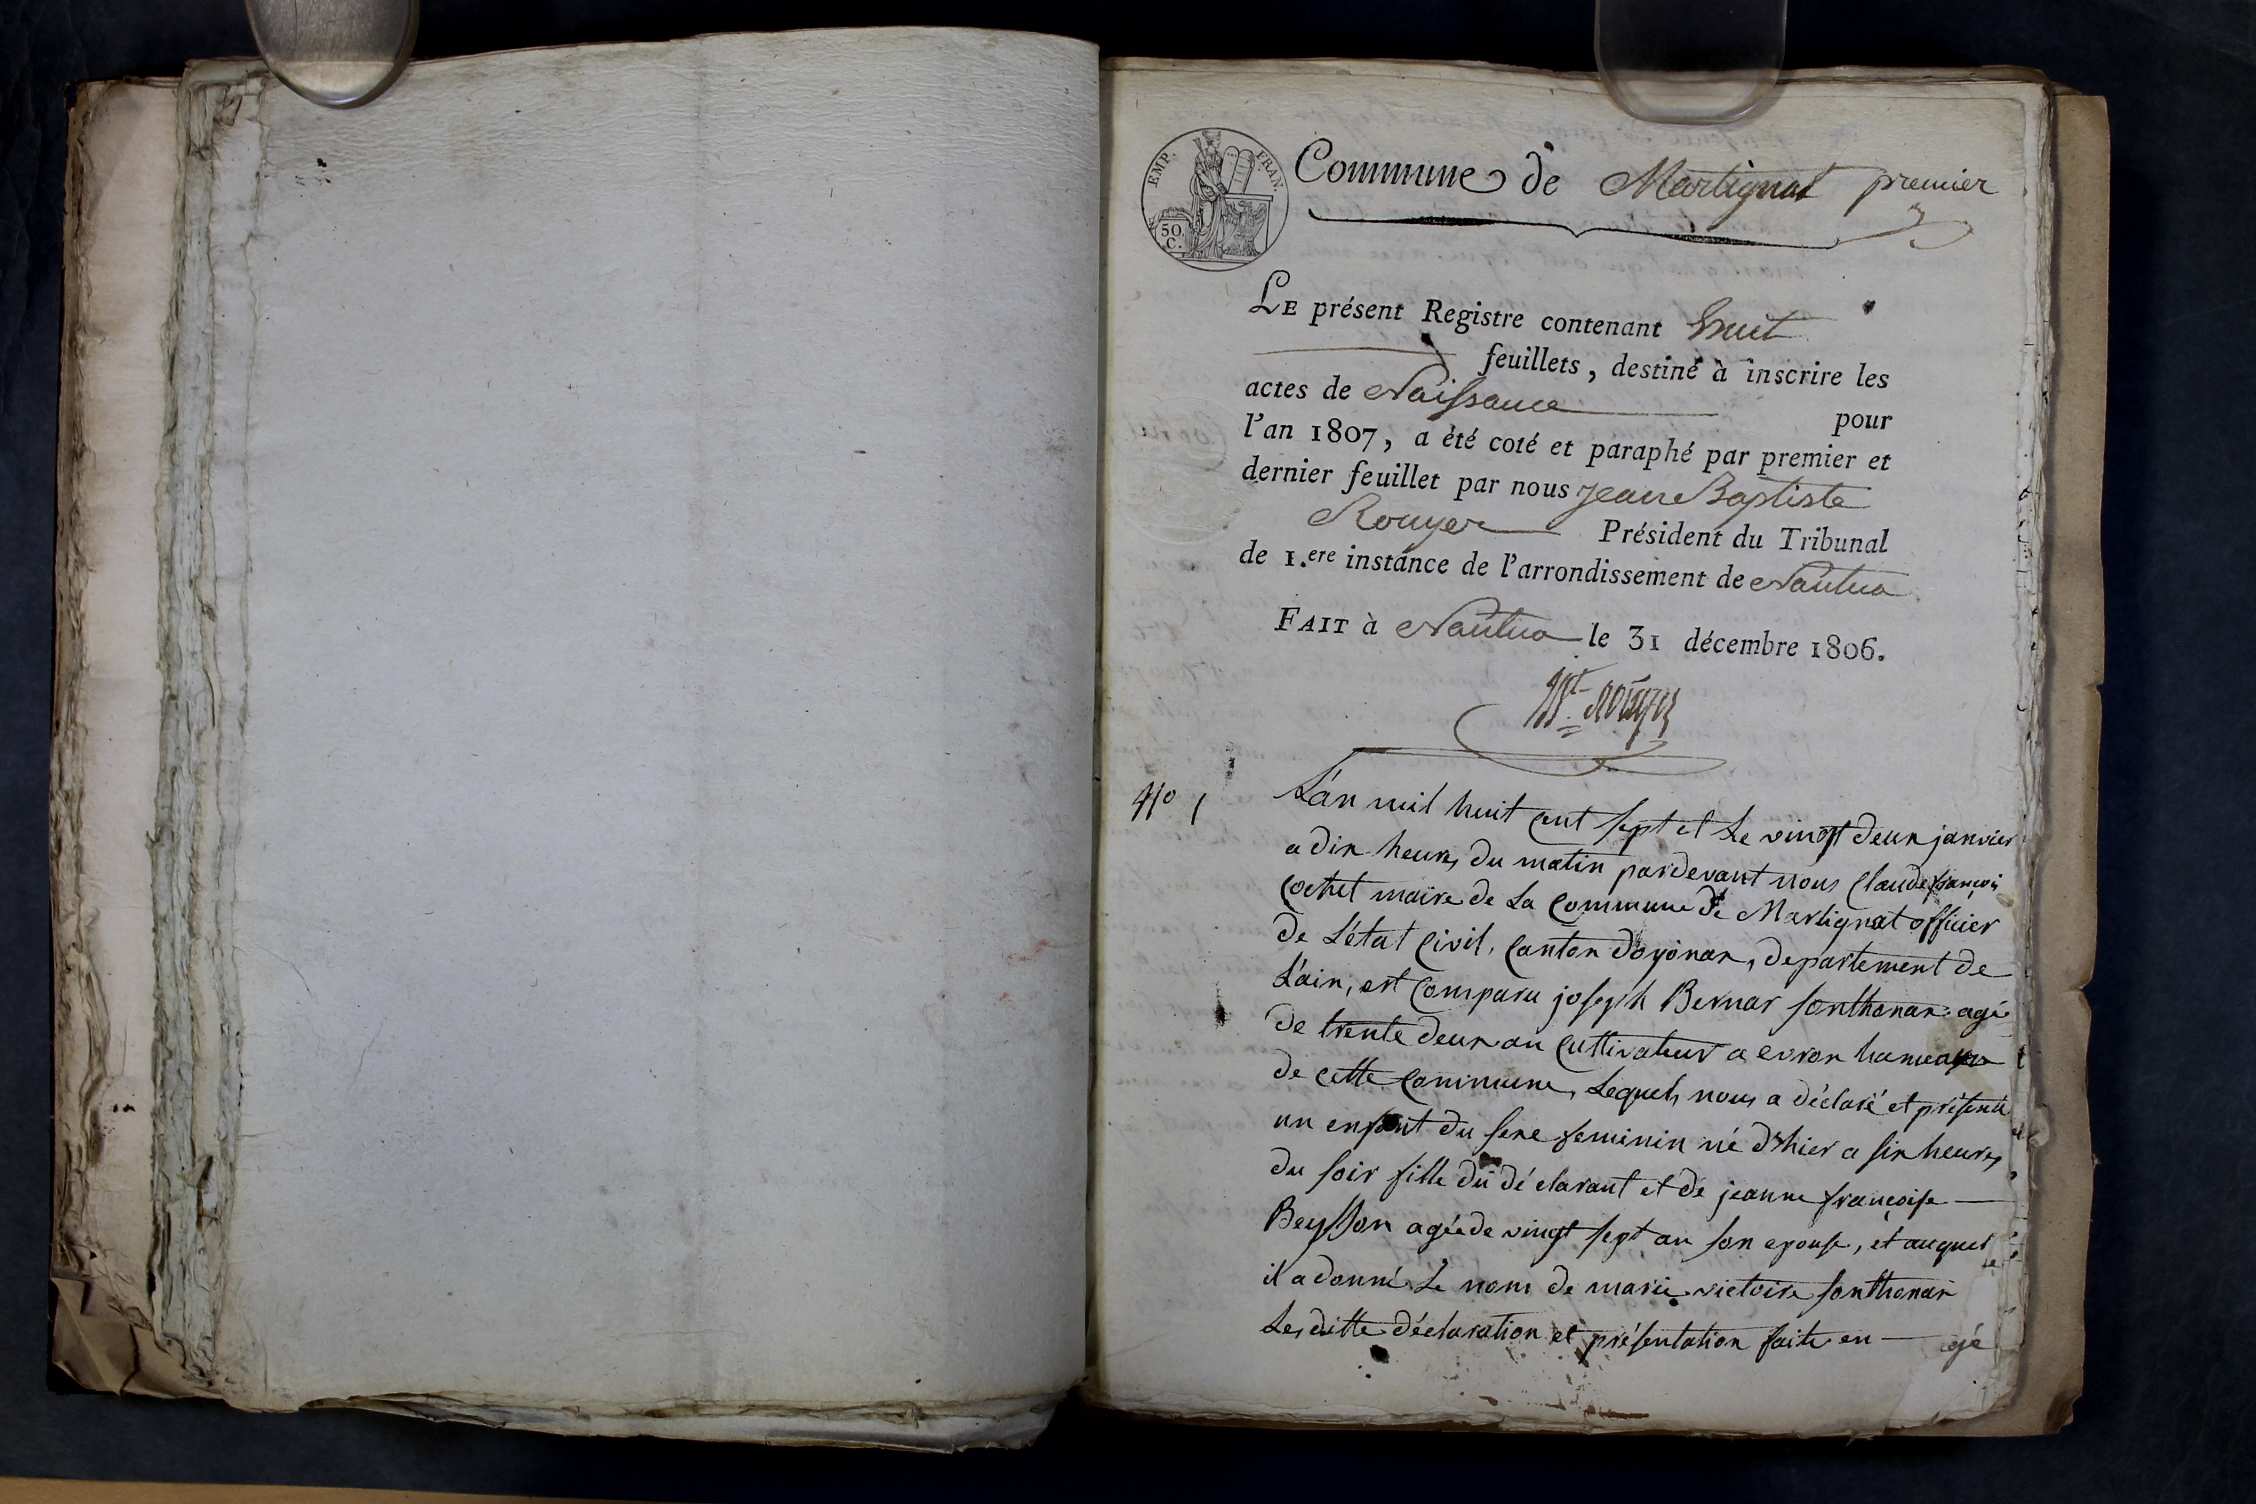 EMP. FRAN.
50. C.
Commune de Martignat premier
LE présent Registre contenant huit
feuillets, destiné à inscrire les
actes de Naissance pour
l'an 1807, a été coté et paraphé par premier et
dernier feuillet par nous Jean Baptiste
Rouyer Président du Tribunal
de 1.ere instance de l'arrondissement de Nantua
FAIT à Nantua le 31 décembre 1806.
Bte Rouyer
No 1
L'án mil huit cent sept et Le vingt deux janvier
a dix heures du matin pardevant nous Claude françois
Cochet maire de La Commune de Martignat officier
de L'état Civil, Canton d'oyonax, departement de
L'ain, est Comparu joseph Bernar sonthonax agé
de trente deux an Cultivateur a evron hameaux
de cette Commune, Lequel, nous a déclaré et présenté
un enfant du sexe feminin né d'hier a six heures
du soir fille du déclarant et de jeanne françoise
Beysson agée de vingt sept an son epouse, et auquel
il a donné Le nom de marie victoire sonthonax
Les ditte déclaration et présentation faite en